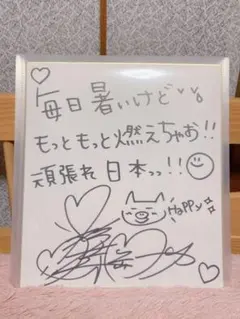 毎日暑いけど
もっともっと燃えちゃお!!
頑張れ日本っっ!!
Happy